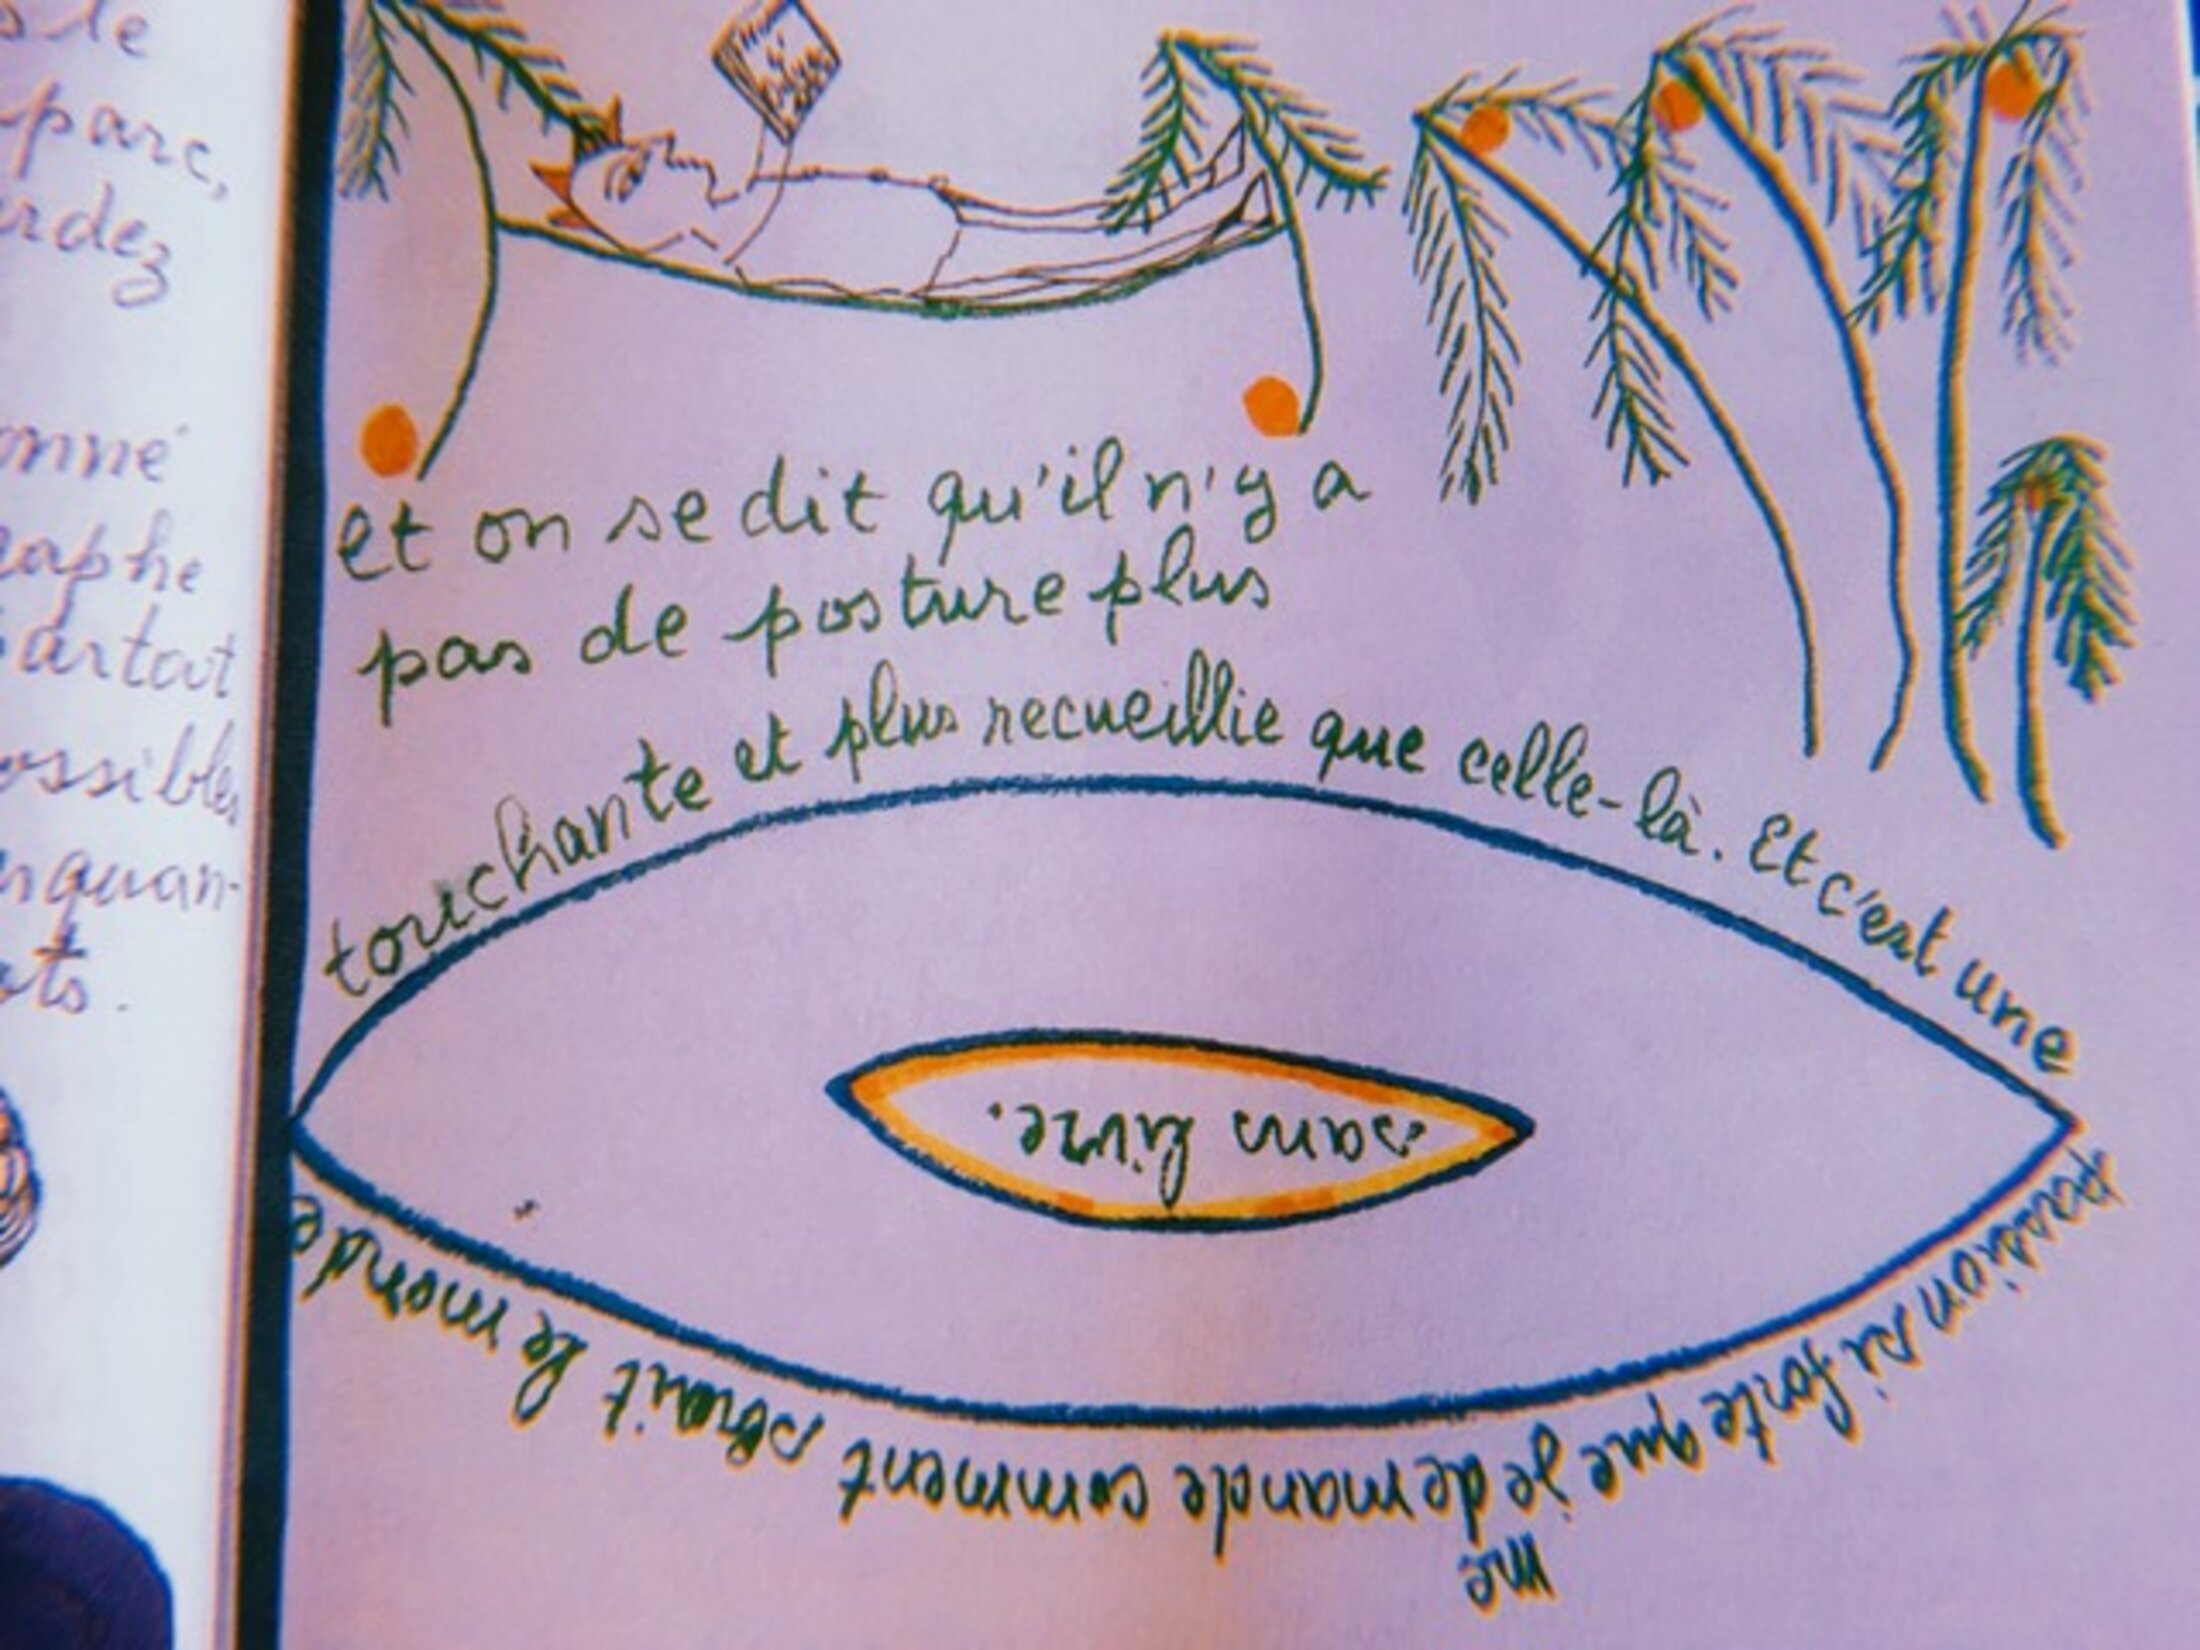 s le
parc,
rdez
onné
raphe
partout
ossibles
n quan-
ats.
et on se dit qu'il n'y a
pas de posture plus
touchante et plus recueillie que celle-là. Et c'est une
position si forte que je demande comment serait le monde
me
sans livre.